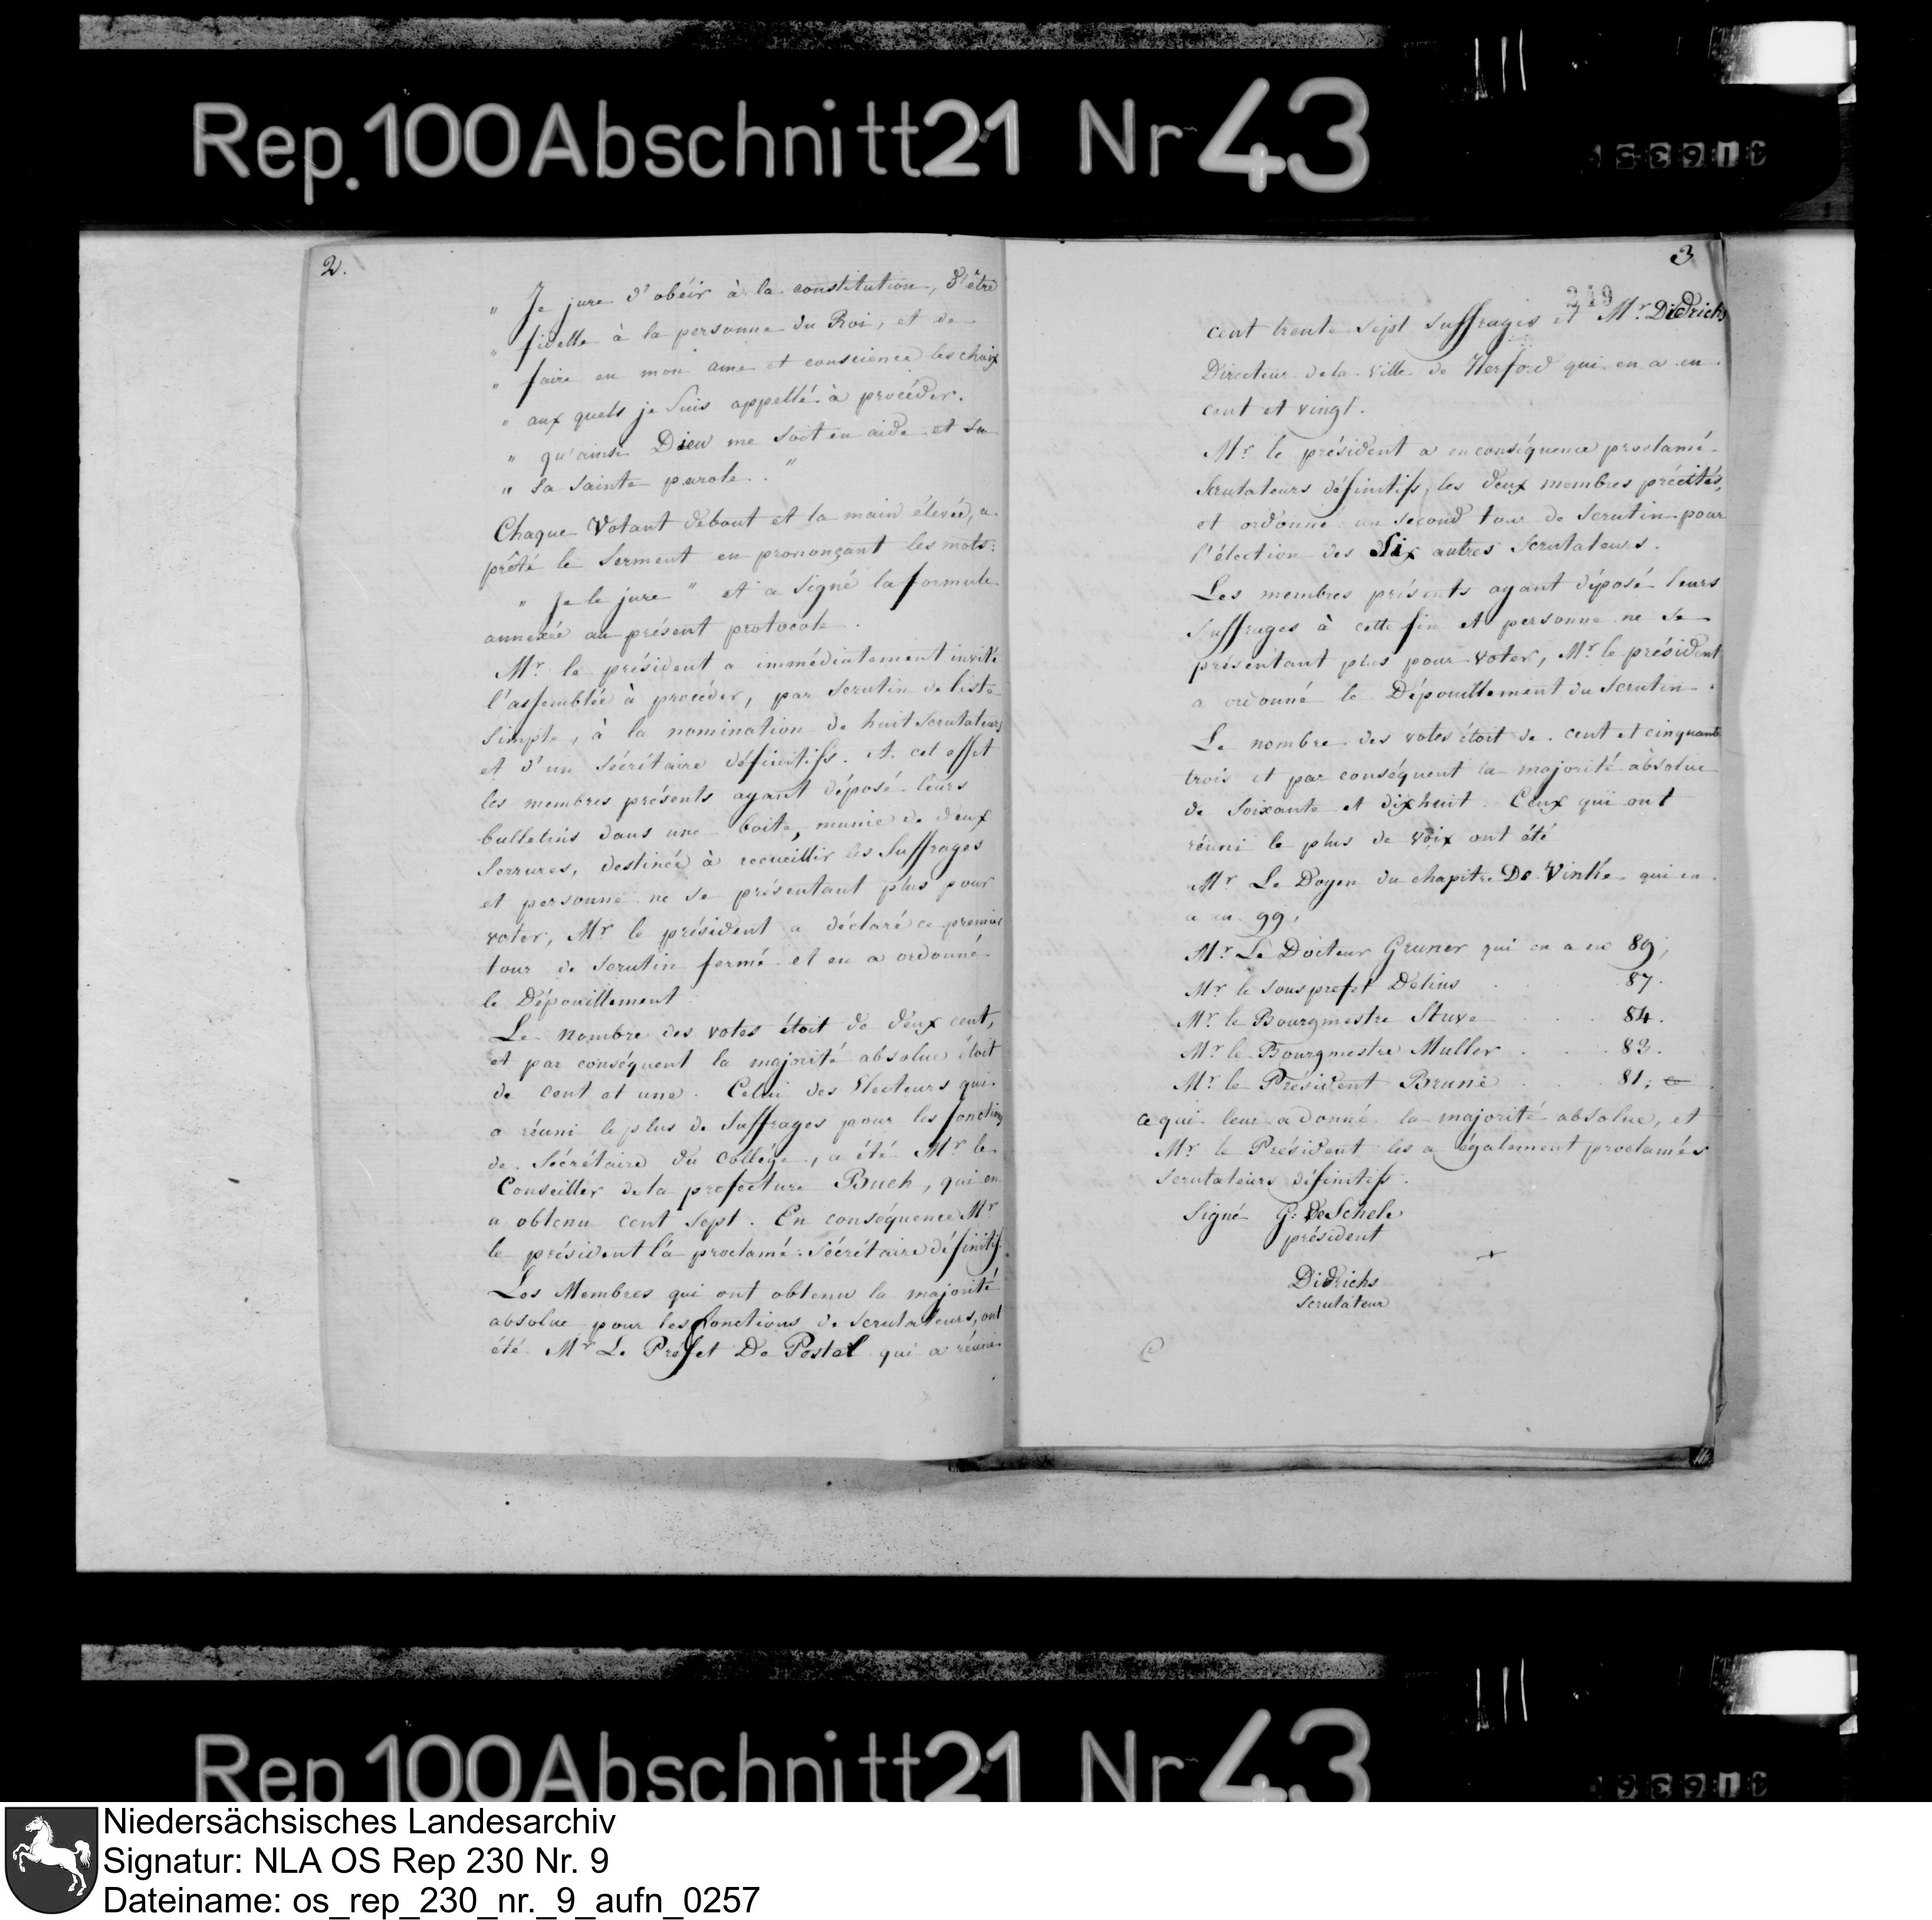 Rep. 100 Abschnitt 21 Nr 43
2.
" Je jure d'obéir à la constitution, d'être
" fidelle à la personne du Roi, et de
" faire en mon ame et conscience les choix
" aux quels je suis appellé à procéder.
" qu'ainsi Dieu me soit en aide et sa
" sa sainte parole. "
Chaque Votant debout et la main élevée, a
prêté le serment en prononçant les mots:
" Je le jure " et a signé la formule
annexée au présent protocole.
Mr. le président a immédiatement invité
l'assemblée à procéder, par scrutin de liste
simple, à la nomination de huit Scrutateurs
et d'un Sécrétaire définitifs. A cet effet
les membres présents ayant déposé leurs
bulletins dans une boite, munie de deux
Serrures, destinée à recueillir les Suffrages
et personne ne se présentant plus pour
voter, Mr le président a déclaré ce premier
tour de Scrutin fermé et en a ordonné
le Dépouillement
Le nombre des votes étoit de deux cent,
et par conséquent la majorité absolue étoit
de cent et une. Celui des Electeurs qui
a réuni le plus de Suffrages pour les fonctions
de Sécrétaire du Collége, a été Mr le
Conseiller de la prefecture Buch, qui en
a obtenu cent sept. En conséquence Mr
le président l'a proclamé Sécrétaire définitif.
Les Membres qui ont obtenu la majorité
absolue pour les fonctions de Scrutateurs, ont
été Mr Le Prefet De Pestel qui a réuni
3
249
cent trente sept suffrages et Mr. Didrichs
Directeur de la ville de Herford qui en a eu
cent et vingt.
Mr. le président a en conséquence proclamé
Scrutateurs définitifs, les deux membres précités,
et ordonné un second tour de Scrutin pour
l'élection des Six autres Scrutateurs.
Les membres présents ayant déposé leurs
Suffrages à cette fin et personne ne se
présentant plus pour voter, Mr. le président
a ordonné le Dépouillement du Scrutin.
Le nombre des votes étoit de cent et cinquante
trois et par conséquent la majorité absolue
de soixante et dixhuit. Ceux qui ont
réuni le plus de voix ont été
Mr. Le Doyen du chapitre De Vinke qui en
a eu 99,
Mr. Le Docteur Gruner qui en a eu 89;
Mr. le Sousprefet Delius . . . 87.
Mr. le Bourgmestre Stuve . . . 84.
Mr. le Bourgmestre Muller . . . 83.
Mr. le Président Brune . . 81;
ce qui leur a donné la majorité absolue, et
Mr. le Président les a également proclamés
Scrutateurs définitifs.
Signé G: De Schele
président
Didrichs
Scrutateur
Rep 100 Abschnitt 21 Nr 43
Niedersächsisches Landesarchiv
Signatur: NLA OS Rep 230 Nr. 9
Dateiname: os_rep_230_nr._9_aufn_0257